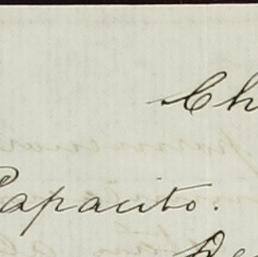 Ch
Papacito.
De